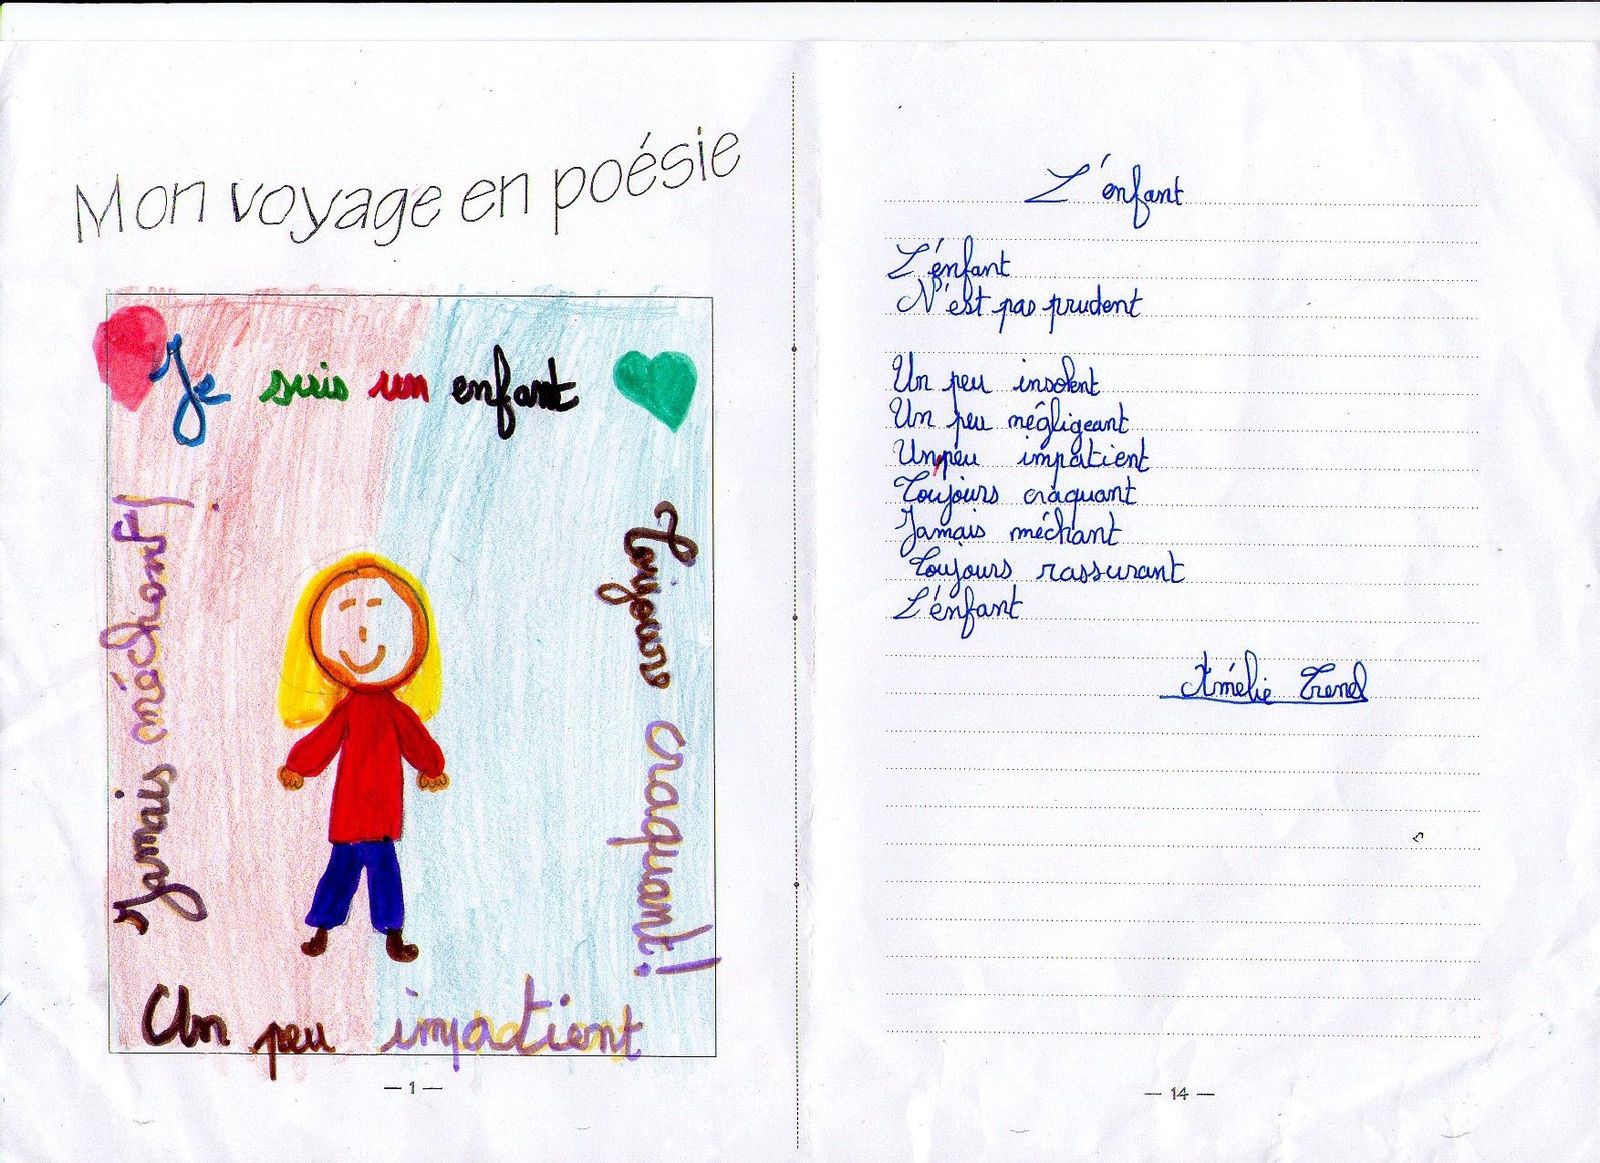 Mon voyage en poésie
Je suis un enfant
Jamais méchant!
Toujours craquant!
Un peu impatient
— 1 —
L'enfant
L'enfant
N'est pas prudent
Un peu insolent
Un peu négligeant
Un peu impatient
Toujours craquant
Jamais méchant
Toujours rassurant
L'enfant
Amélie Trenel
— 14 —